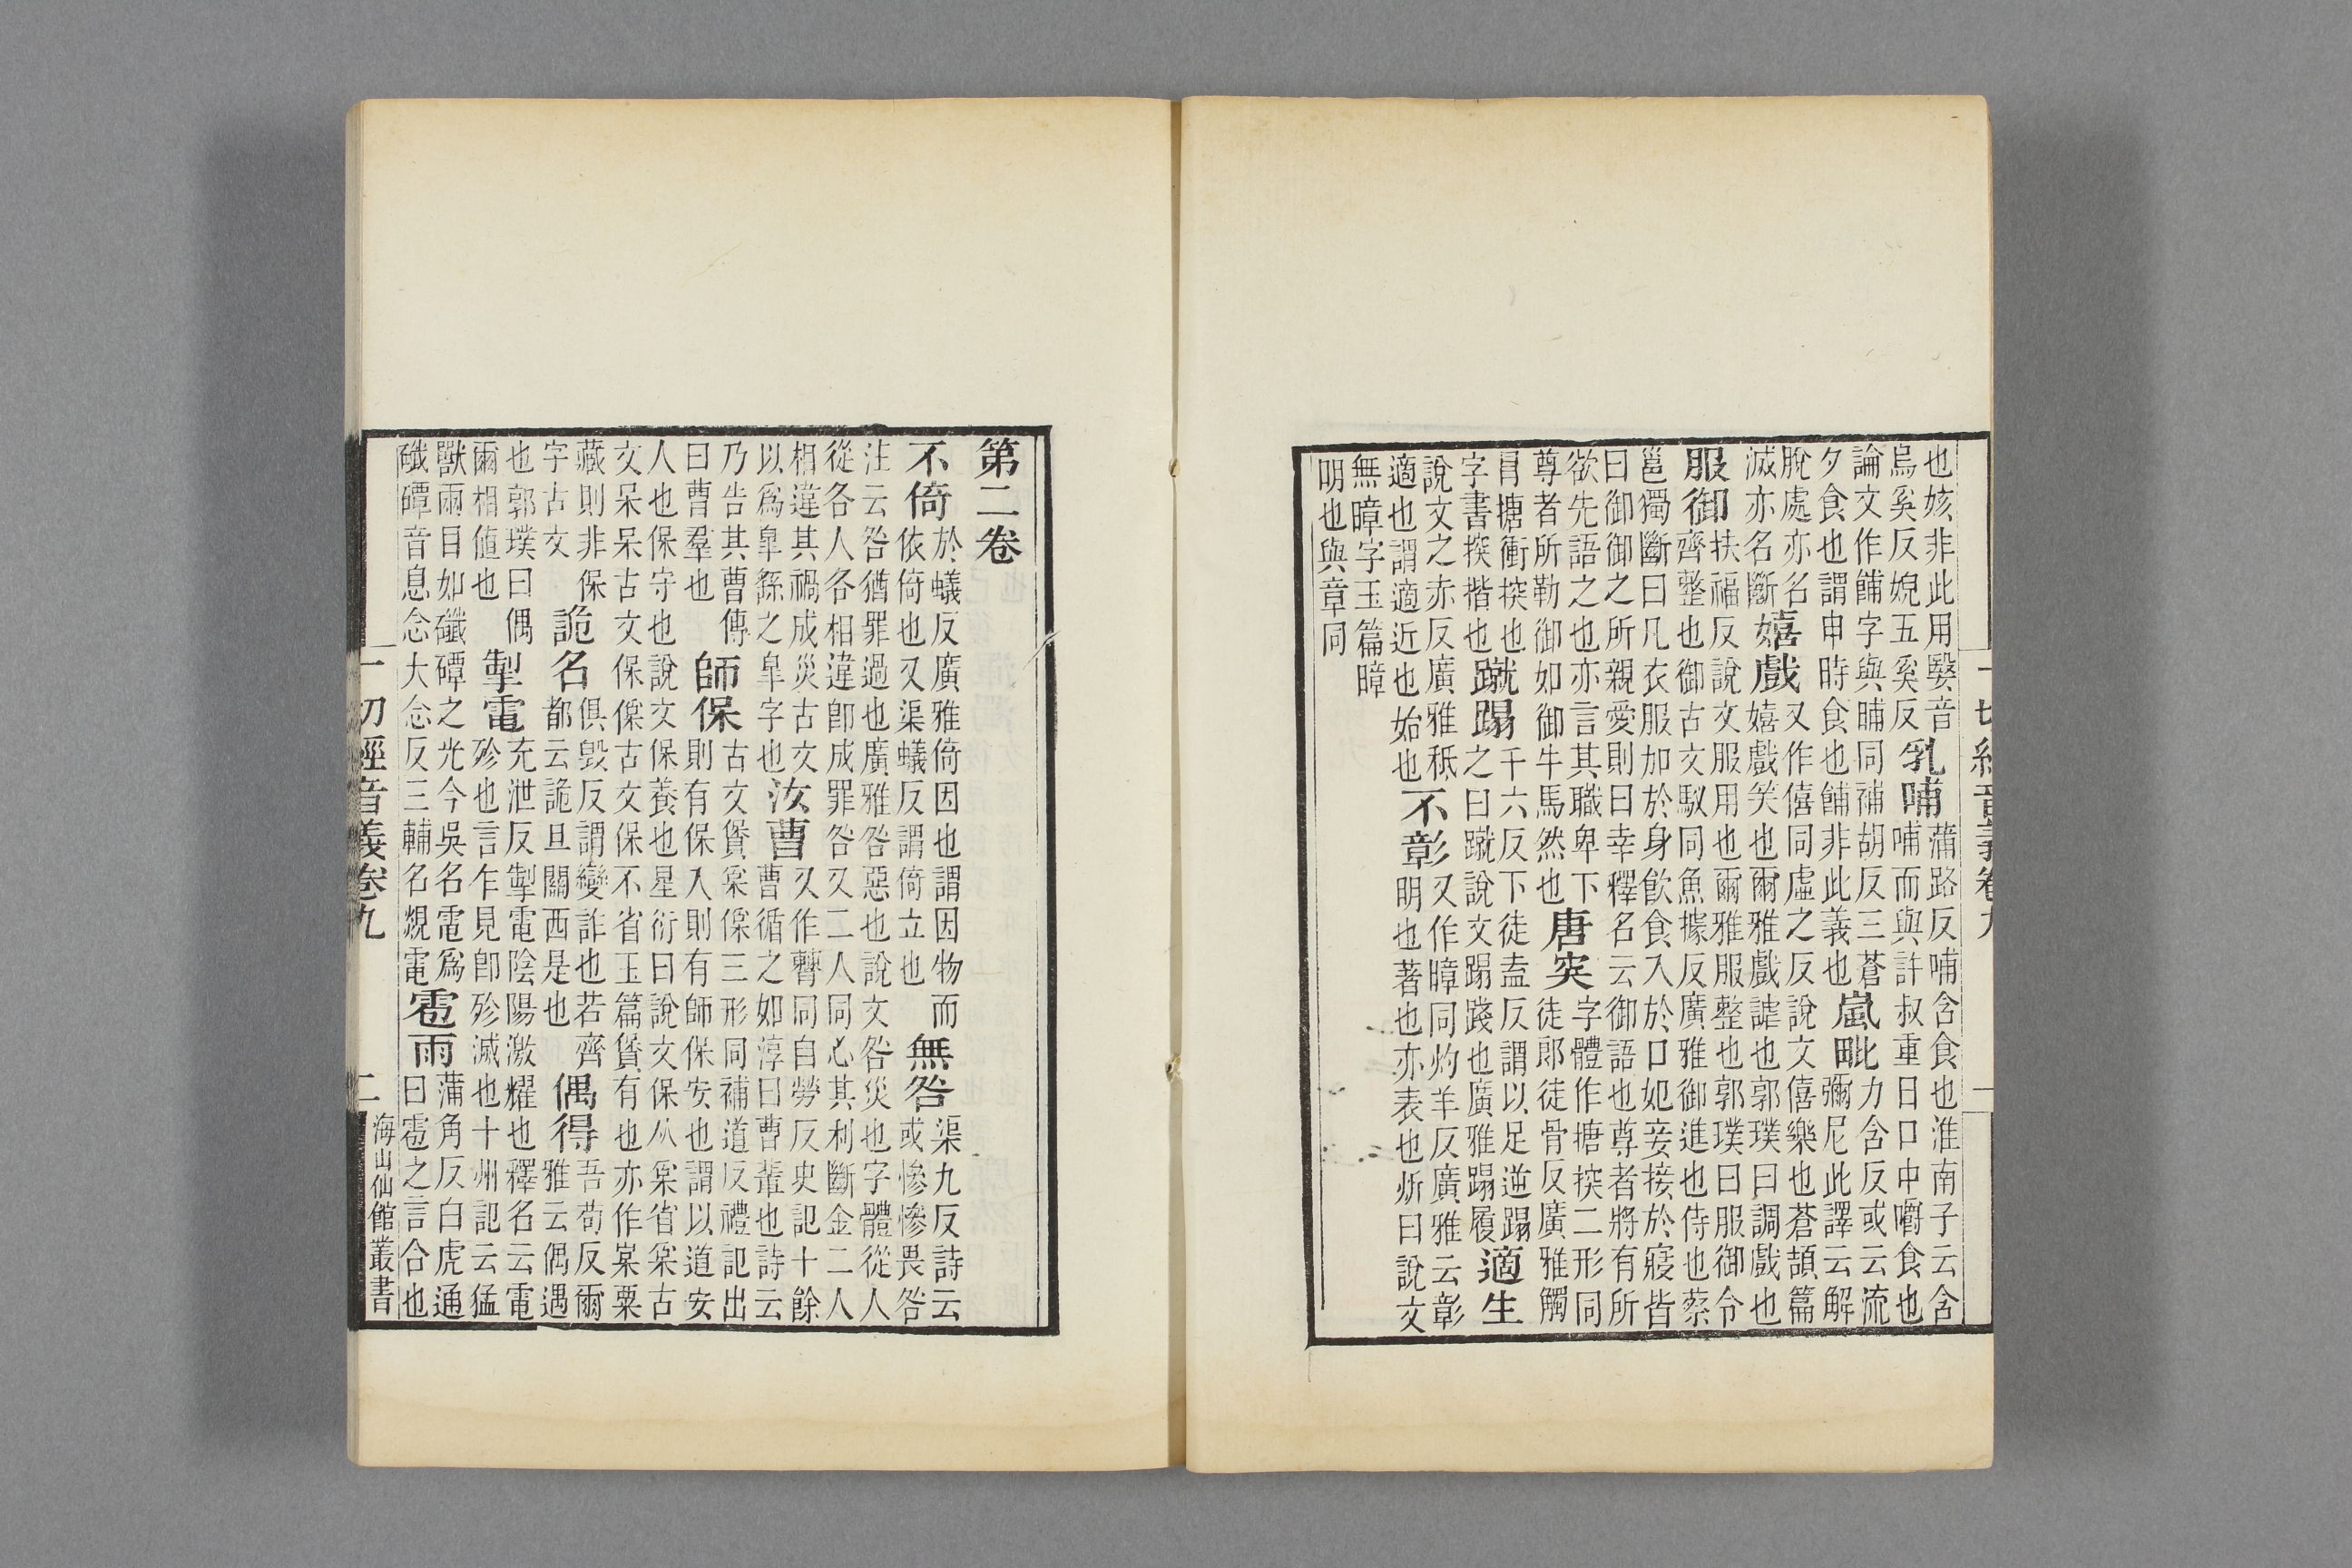 一切經音義卷九
一
也姟非此用翳音
烏奚反婗五奚反
乳哺
蒲路反哺含食也淮南子云含
哺而與許叔重曰口中嚼食也
論文作餔字與晡同補胡反三蒼
夕食也謂申時食也餔非此義也
嵐毗
力含反或云流
彌尼此譯云解
脫處亦名
滅亦名斷
嬉戲
又作僖同虛之反說文僖樂也蒼頡篇
嬉戲笑也爾雅戲謔也郭璞曰調戲也
服御
扶福反說文服用也爾雅服整也郭璞曰服御令
齊整也御古文馭同魚據反廣雅御進也侍也蔡
邕獨斷曰凡衣服加於身飲食入於口妃妾接於寢皆
曰御御之所親愛則曰幸釋名云御語也尊者將有所
欲先語之也亦言其職卑下
尊者所勒御如御牛馬然也
唐突
字體作搪揬二形同
徒郎徒骨反廣雅觸
冒搪衝揬也
字書揬揩也
蹴蹋
千六反下徒盍反謂以足逆蹋
之曰蹴說文蹋踐也廣雅蹋履
適生
說文之赤反廣雅秪
適也謂適近也始也
不彰
又作暲同灼羊反廣雅云彰
明也著也亦表也炘曰說文
無暲字玉篇暲
明也與章同
第二卷
不倚
於蟻反廣雅倚因也謂因物而
依倚也又渠蟻反謂倚立也
無咎
渠九反詩云
或慘慘畏咎
注云咎猶罪過也廣雅咎惡也說文咎災也字體從人
從各人各相違卽成罪咎又二人同心其利斷金二人
相違其禍成災古文
以爲臯繇之臯字也
汝曹
又作同自勞反史記十餘
曹循之如淳曰曹輩也詩云
乃告其曹傳
曰曹羣也
師保
古文賲三形同補道反禮記出
則有保入則有師保安也謂以道安
人也保守也說文保養也星衍曰說文保从省古
文呆呆古文保古文保不省玉篇賲有也亦作粟
藏則非保
字古文
詭名
俱毀反謂變詐也若齊
都云詭旦關西是也
偶得
吾苟反爾
雅云偶遇
也郭璞曰偶
爾相値也
掣電
充泄反掣電陰陽激耀也釋名云電
殄也言乍見卽殄滅也十州記云猛
獸兩目如礛磹之光今吳名電爲
礛磹音息念大念反三輔名覢電
雹雨
蒲角反白虎通
曰雹之言合也
一切經音義卷九
二
海山仙館叢書